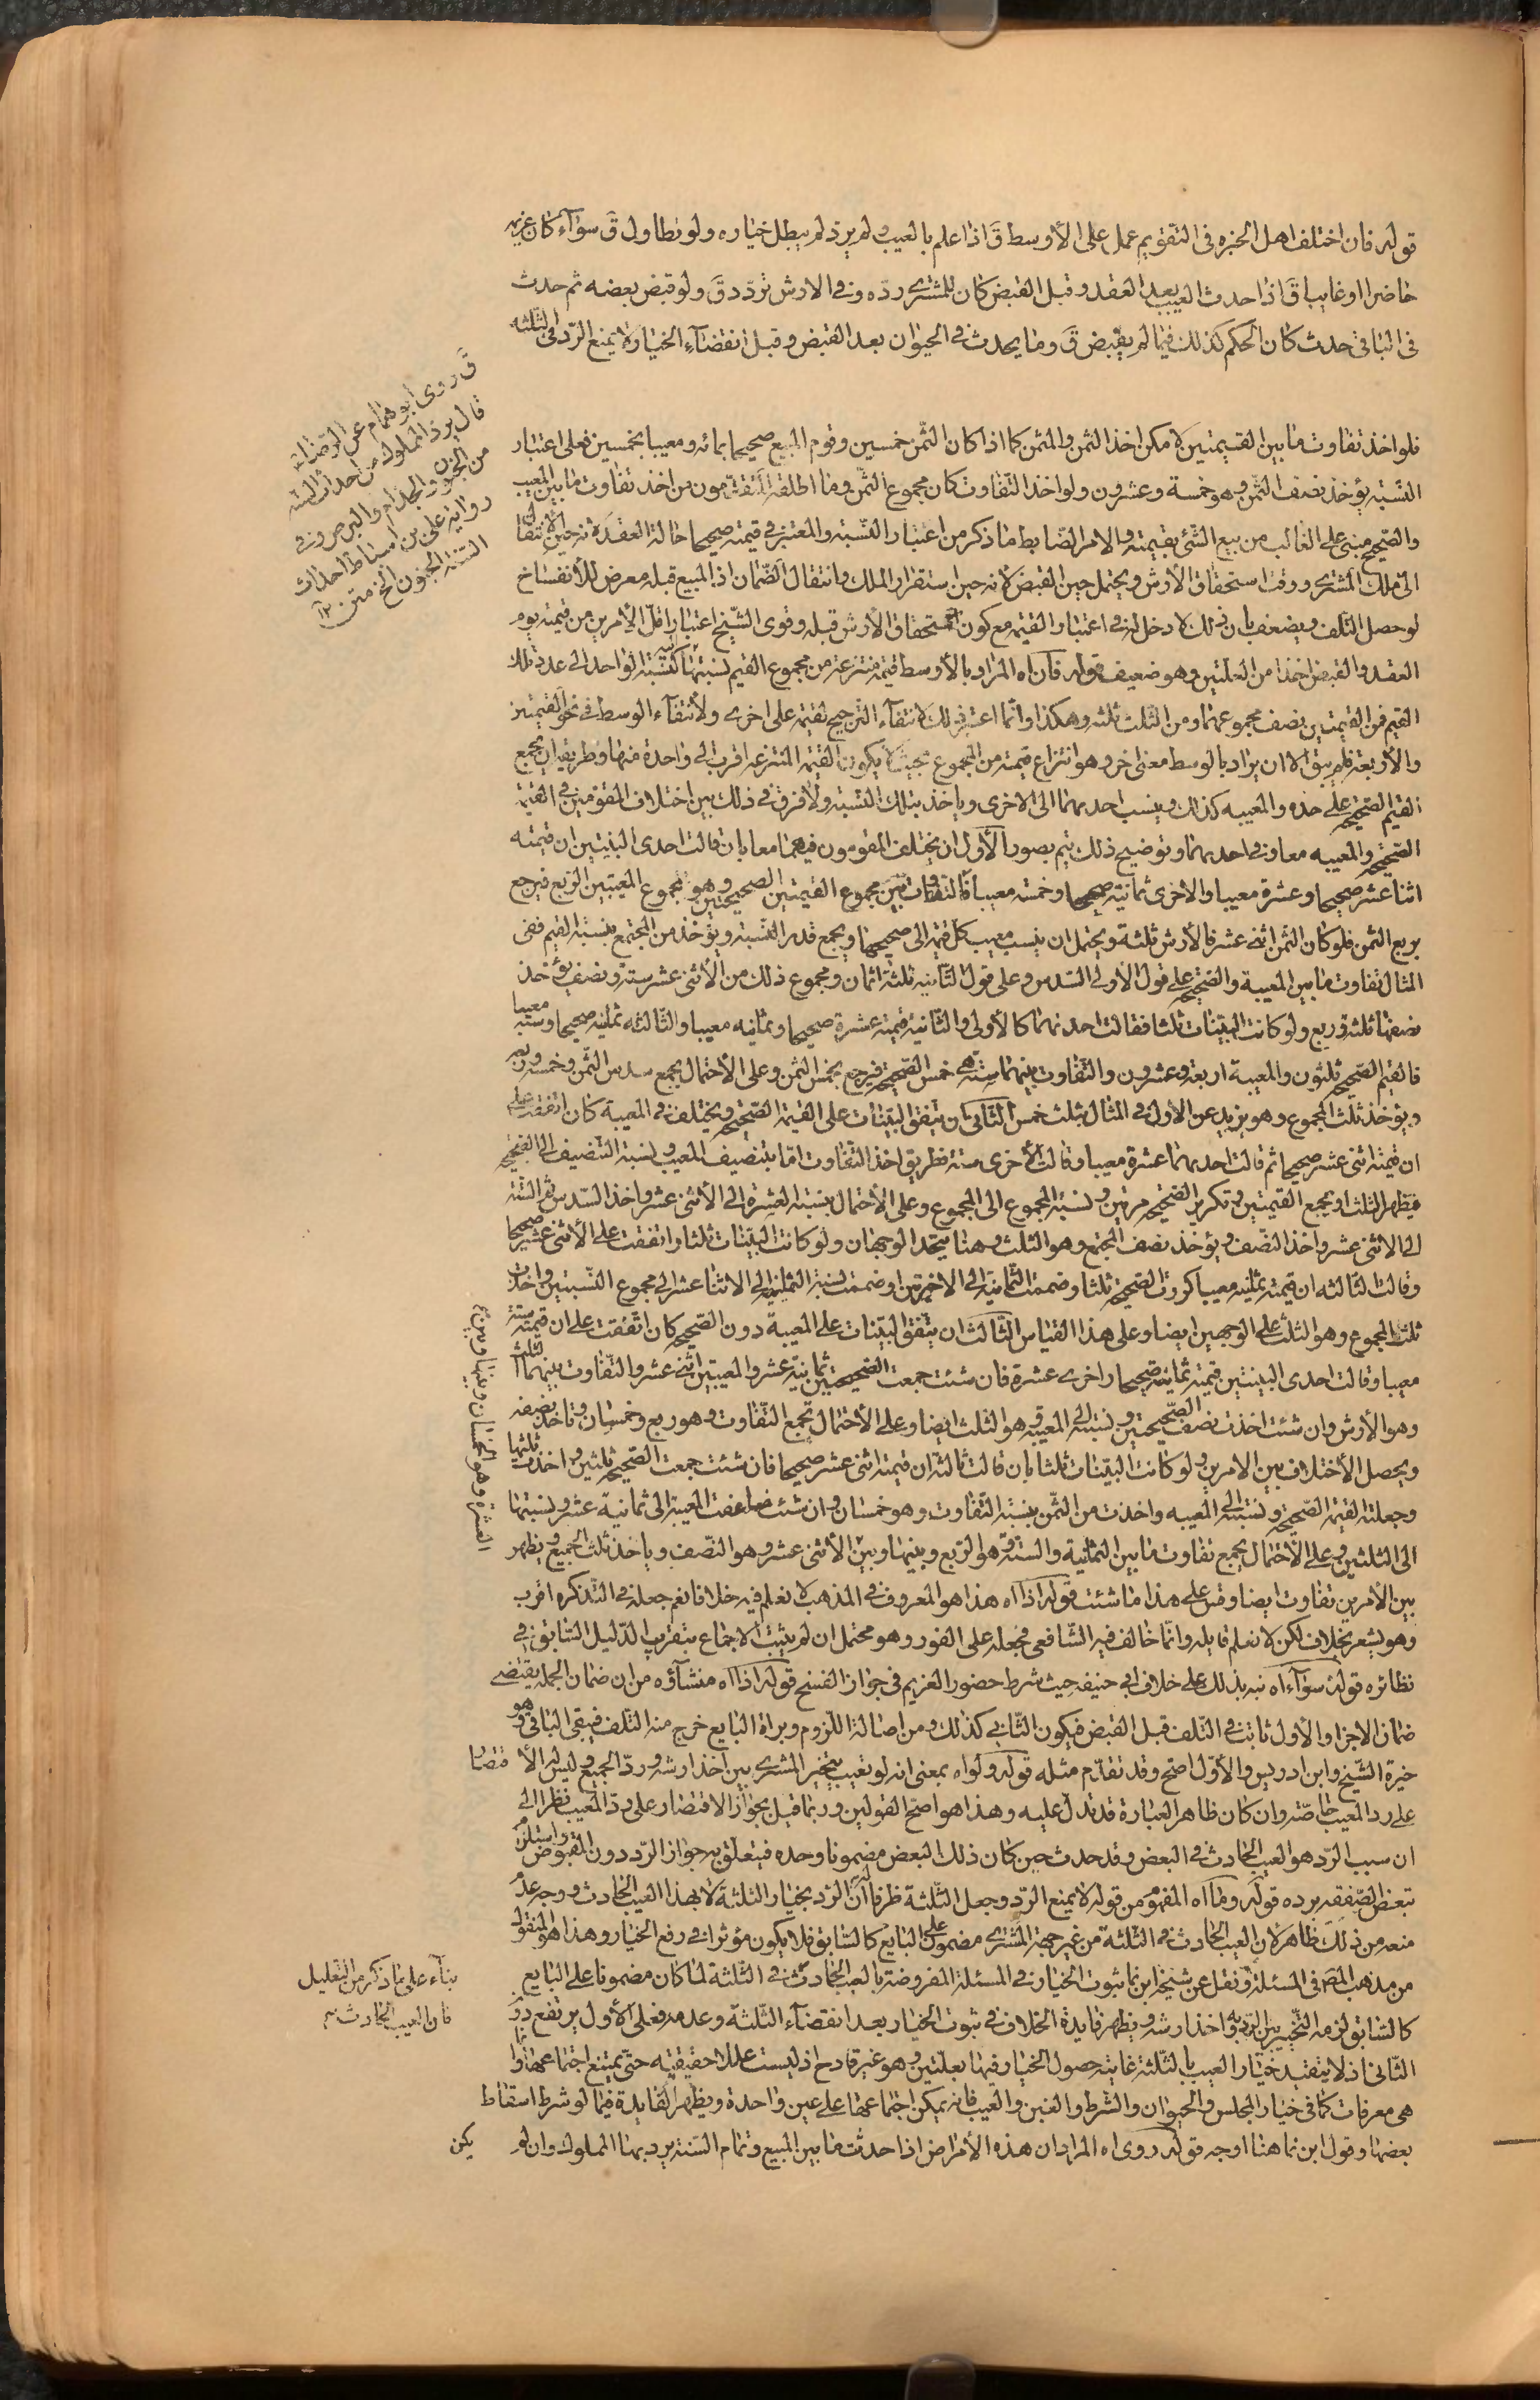 قوله فان اختلف اهل الخبرة فى التقويم عمل على الأوسط قَ اذا علم بالعيب ولم يردّ لم يبطل خياره ولو تطاول قَ سوآء كان غريمه
حاضرا او غايبا قَ اذا حدث العيب بعد العقد وقبل القبض كان للمشترى ردّه وفى الارش تردّد قَ ولو قبض بعضه ثم حدث
فى الباقى حدث كان الحكم كذلك فيما لم يقبض قَ وما يحدث فى الحيوان بعد القبض وقبل انقضآء الخيار لا يمنع الردّ فى الثلثه
قَ روى ابو همام عن الرضا
قال يرد المملوك من احداث السنه
من الجنون والجذام والبرص وفى
رواية على بن اسباط احداث
السنه الجنون الخ متن ١٢
فلو اخذ تفاوت ما بين القيمتين لامكن اخذ الثمن والمثمن كما اذا كان الثمن خمسين وقوم المبيع صحيحا بمائه ومعيبا بخمسين فعلى اعتبار
النسبة يؤخذ نصف الثمن وهو خمسة وعشرون ولو اخذ التفاوت كان مجموع الثمن وما اطلقه المتقدّمون من اخذ تفاوت ما بين المعيب
والصحيح مبنى على الغالب من بيع الشئ بقيمته والامر الضابط ما ذكر من اعتبار النسبة والمعتبر فى قيمته صحيحا حالة العقد لانه حين الانتقال
الى ملك المشترى ووقت استحقاق الأرش ويحتمل حين القبض لانه حين استقرار الملك وانتقال الضمان اذ المبيع قبله معرض للأنفساخ
لو حصل التلف ويضعف بان ذلك لا دخل له فى اعتبار القيمه مع كون استحقاق الأرش قبله وقوى الشيخ اعتبار اقل الأمرين من قيمته يوم
العقد والقبض اخذا من العلتين وهو ضعيف قوله فان اه المراد بالأوسط قيمه منتزعة من مجموع القيم نسبتها كنسبة الواحد الى عدد تلك
القيم فمن القيمتين نصف مجموعهما ومن الثلث ثلثه وهكذا وانّما اعتبر ذلك لانتفآء الترجيح لقيمه على اخرى ولأنتفآء الوسط فى نحو القيمتين
والأربعة فلم يبق الا ان يراد بالوسط معنى اخر وهو انتزاع قيمته من المجموع بحيث لا يكون القيمه المنتزعه اقرب الى واحدة منها وطريقه ان يجمع
القيم الصحيحه على حده والمعيبه كذلك وينسب احديهما الى الاخرى وياخذ بتلك النسبة ولا فرق فى ذلك بين اختلاف المقومين فى القيمة
الصحيحه والمعيبه معا او فى احديهما وتوضيح ذلك يتم بصور الأول ان يختلف المقومون فيهما معا بان قالت احدى البنيتين ان قيمته
اثنا عشر صحيحا وعشرة معيبا والاخرى ثمانية صحيحا وخمسه معيبا فالتفاوت بين مجموع القيمتين الصحيحتين وهو مجموع المعيبتين الربع فيرجع
بربع الثمن فلو كان الثمن اثنى عشر فالأرش ثلثة ويحتمل ان ينسب معيب كل قيمه الى صحيحها ويجمع قدر النسبه ويؤخذ من المجتمع بنسبة القيم ففى
المثال تفاوت ما بين المعيبة والصحيحه على قول الأولى السدس وعلى قول الثانيه ثلثة اثمان ومجموع ذلك من الأثنى عشر ستة ونصف يؤخذ
نصفها ثلثة وربع ولو كانت البينات ثلثا فقالت احديهما كالأولى والثانية قيمته عشرة صحيحا وثمانيه معيبا والثالثه ثمانية صحيحا وستة معيبا
فالقيم الصحيحه ثلثون والمعيبة اربعة وعشرون والتفاوت بينهما ستة هى خمس الصحيحه فيرجع بخمس الثمن وعلى الأحتمال يجمع سدس الثمن وخمسه وربعه
ويؤخذ ثلث المجموع وهو يزيد عن الأول فى المثال بثلث خمس الثانى ان يتفق البينات على القيمة الصحيحه ويختلف فى المعيبة كان اتفقت على
ان قيمته اثنى عشر صحيحا ثم قالت احديهما عشرة معيبا وقالت الأخرى ستة فطريق اخذ التفاوت امّا بتنصيف المعيب ونسبة التنصيف الى الصحيحه
فيظهر الثلث او يجمع القيمتين وتكرير الصحيحه مرتين ونسبة المجموع الى المجموع وعلى الأحتمال ينسبة العشرة الى الأثنى عشر واخذ السدس ثم الستة
الى الاثنى عشر واخذ النصف ويؤخذ نصف المجتمع وهو الثلث وهنا يتحد الوجهان ولو كانت البينات ثلثا واتفقت على الأثنى عشر صحيحا
وقالت الثالثه ان قيمته ثمانيه معيبا كررت الصحيحه ثلثا وضممت الثمانية الى الاخيرتين او ضممت نسبة الثمانية الى الاثنا عشر الى مجموع النسبتين واخذت
ثلث المجموع وهو الثلث على الوجهين ايضا وعلى هذا القياس الثالث ان يتفق البينات على المعيبة دون الصحيحه كان اتفقت على ان قيمته ستة
معيبا وقالت احدى البينتين قيمته ثمانية صحيحا واخرى عشرة فان شئت جمعت الصحيحتين ثمانية عشر والمعيبتين اثنى عشر والتفاوت بينهما الثلث
وهو الأرش وان شئت اخذت نصف الصحيحتين ونسبته الى المعيبة وهو الثلث ايضا وعلى الأحتمال تجمع التفاوت وهو ربع وخمسان وتأخذ نصفه
ويحصل الأختلاف بين الامرين ولو كانت البينات ثلثا بان قالت ثالثة ان قيمته اثنى عشر صحيحا فان شئت جمعت الصحيحه ثلثين واخذت ثلثها
وجعلته القيمة الصحيحه ونسبته الى المعيبه واخذت من الثمن بنسبة التفاوت وهو خمسان وان شئت ضاعفت المعيبة الى ثمانية عشر ونسبتها
الى الثلثين وعلى الأحتمال يجمع تفاوت ما بين الثمانية والستة وهو الربع وبينها وبين الأثنى عشر وهو النصف وياخذ ثلث الجميع ويظهر
العشرة وهو الخمسان وبينها وبين
بين الأمرين تفاوت ايضا وقس على هذا ما شئت قوله اذا اه هذا هو المعروف فى المذهب لا نعلم فيه خلافا نعم جعله فى التذكره اقرب
وهو يشعر بخلاف لكن لا نعلم قايله وانّما خالف فيه الشافعى فجعله على الفور وهو محتمل ان لم يثبت الاجماع بتقريب الدليل السابق فى
نظائره قوله سوآء اه نبه بذلك على خلاف ابى حنيفه حيث شرط حضور الغريم فى جواز الفسخ قوله اذا اه منشآؤه من ان ضمان الجمله يقتضى
ضمان الاجزا والأول ثابت فى التلف قبل القبض فيكون الثانى كذلك ومن اصالة اللزوم وبراة البايع خرج منه التلف فيبقى الباقى وهو
خيرة الشيخ وابن ادريس والأوّل اصح وقد تقدّم مثله قوله ولو اه بمعنى انه لو تعيب يتخير المشترى بين اخذ ارشه وردّ الجميع وليس له الأقتصار
على رد المعيب خاصّة وان كان ظاهر العبارة قد تدل عليه وهذا هو اصح القولين وربما قيل بجواز الاقتصار على ردّ المعيب نظرا الى
ان سبب الردّ هو العيب الحادث فى البعض وقد حدث حين كان ذلك البعض مضمونا وحده فيتعلق به جواز الردّ دون المقبوض واستلزم
تبعض الصفقه برده قوله وما اه المفهوم من قوله لا يمنع الردّ وجعل الثلثة ظرفا له ان الردّ بخيار الثلثة لا بهذا العيب الحادث ووجه عدم
منعه من ذلك ظاهر لان العيب الحادث فى الثلثة من غير جهة المشترى مضمون على البايع كالسابق فلا يكون مؤثرا فى رفع الخيار وهذا هو المنقول
من مذهب المصَ فى المسئلة ونقل عن شيخه ابن نما ثبوت الخيار فى المسئلة المفروضة بالعيب الحادث فى الثلثة لما كان مضمونا على البايع
بناء على ما ذكر من التعليل
فان العيب الحادث
كالسابق لزمه التخيير بين الردّ به واخذ ارشه ويظهر فايدة الخلاف فى ثبوت الخيار بعد انقضآء الثلثة وعدمه فعلى الأول يرتفع دون
الثانى اذ لا يتقيد خيار العيب بالثلثة غايته حصول الخيار فيها بعلتين وهو غير قادح اذ ليست عللا حقيقيه حتى يمتنع اجتماعها وانما
هى معرفات كما فى خيار المجلس والحيوان والشرط والغبن والعيب فانه يمكن اجتماعها على عين واحدة ويظهر الفايدة فيما لو شرط اسقاط
بعضها وقول ابن نما هنا اوجه قوله روى اه المراد ان هذه الأمراض اذا حدثت ما بين المبيع وتمام السنة يرد بها المملوك وان لم
يكن